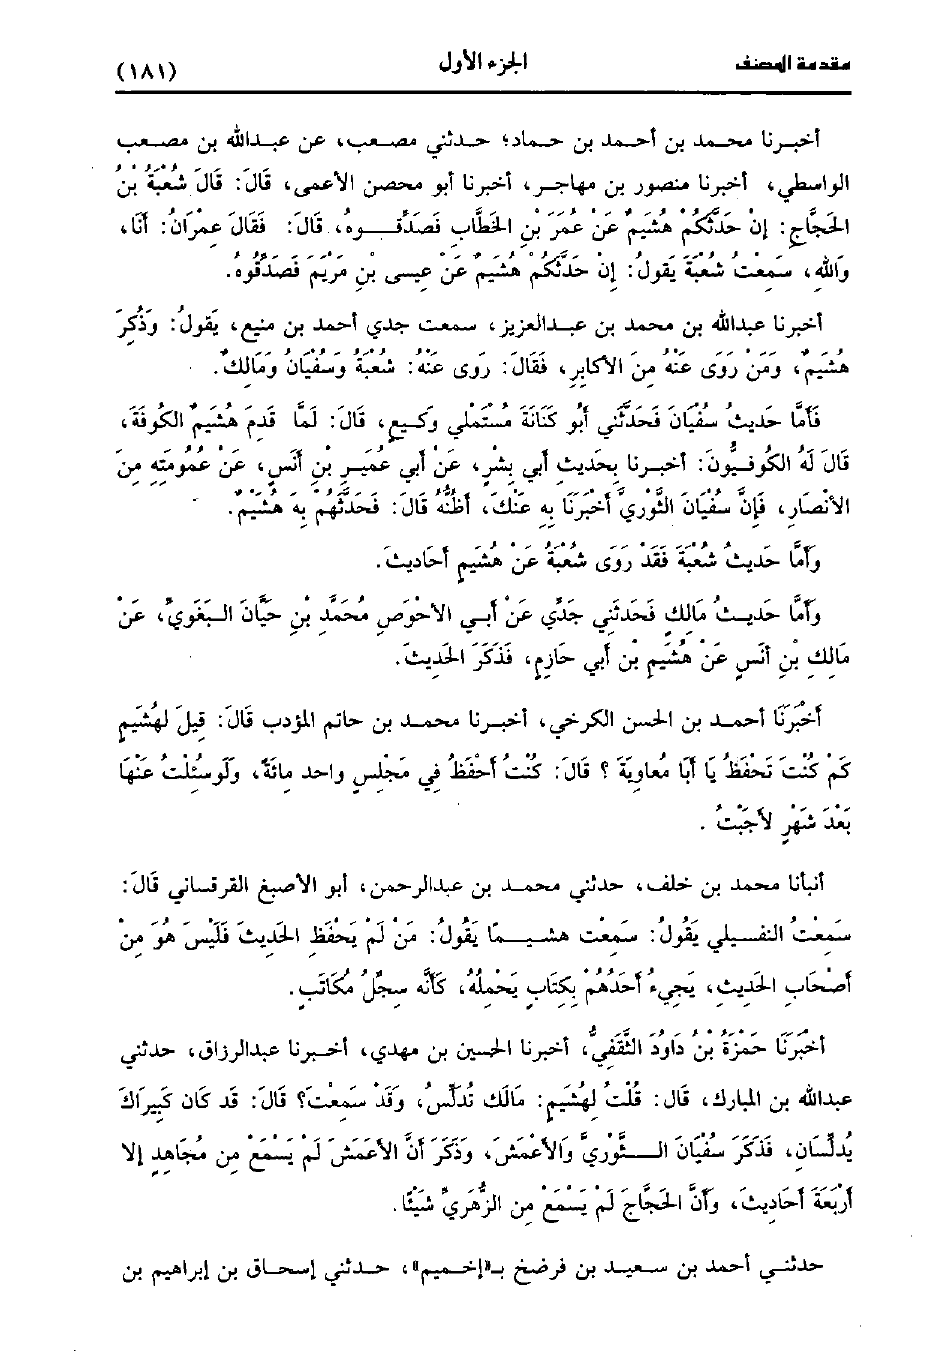 مقدمة المصنف الجزء الأول (١٨١)
أخبرنا محمد بن أحمد بن حماد؛ حدثني مصعب، عن عبدالله بن مصعب
الواسطي، أخبرنا منصور بن مهاجر، أخبرنا أبو محصن الأعمى، قَالَ: قَالَ شُعبَةُ بْنُ
الحَجَّاجِ: إِنْ حَدَّثَكُمْ هُشَيمٌ عَنْ عُمَرَ بنِ الخطَّابِ فَصَدِّقُوهُ، قَالَ: فَقَالَ عِمْرَانُ: أَنَا،
وَاللهِ، سَمِعتُ شُعبَةَ يَقُولُ: إِنْ حَدَّثَكُمْ هُشَيمٌ عَنْ عيسى بنِ مَريَمَ فَصَدِّقُوهُ.
أخبرنا عبدالله بن محمد بن عبدالعزيز، سمعت جدي أحمد بن منيع، يَقُولُ: وَذُكِرَ
هُشَيمٌ، ومَنْ رَوَى عَنْهُ مِنَ الأكَابِرِ، فَقَالَ: رَوَى عَنْهُ: شُعْبَةُ وَسُفْيَانُ وَمَالكٌ.
فَأمَّا حَديثُ سُفْيَانَ فَحَدَّثَنِي أَبُو كنَانَةَ مُسْتَملي وَكيعٍ، قَالَ: لَمَّا قَدِمَ هُشَيْمٌ الكُوفَةَ،
قَالَ لَهُ الكُوفيُّونَ: أخبرنا بِحَديثِ أبي بِشْرٍ، عَنْ أبي عُميرِ بنِ أَنَسٍ، عَنْ عُمُومَتِهِ مِنَ
الأنْصَارِ، فَإنَّ سُفْيَانَ الثَّوْرِيَّ أَخْبَرَنَا بِهِ عَنْكَ، أَظُنُّهُ قَالَ: فَحَدَّثَهُمْ بِهِ هُشَيْمٌ.
وَأَمَّا حَديثُ شُعْبَةَ فَقَدْ رَوَى شُعْبَةُ عَنْ هُشَيْمٍ أَحَاديثَ.
وَأَمَّا حَديثُ مَالك فَحَدثَني جَدِّي عَنْ أَبي الأحْوَصِ مُحَمَّد بنِ حَيَّانَ البَغَويِّ، عَنْ
مَالِكِ بْنِ أَنَسٍ عَنْ هُشَيْمِ بْنِ أَبي حَازِمٍ، فَذَكَرَ الحَديثَ.
أَخْبَرَنَا أحمد بن الحسن الكرخي، أخبرنا محمد بن حاتم المؤدب قَالَ: قِيلَ لهُشَيْمٍ
كَمْ كُنْتَ تَحْفَظُ يَا أَبَا مُعاويَةَ ؟ قَالَ: كُنْتُ أَحْفَظُ في مَجْلسٍ واحد مائَةً، ولَو سُئِلْتُ عَنْهَا
بَعْدَ شَهْرٍ لأَجَبْتُ .
أنبأنا محمد بن خلف، حدثني محمد بن عبدالرحمن، أبو الأصبغ القرقساني قَالَ:
سَمِعْتُ النفيلي يَقُولُ: سمعت هشيمًا يَقُولُ: مَنْ لَمْ يَحْفَظِ الحَديثَ فَلَيْسَ هُوَ مِنْ
أَصْحَابِ الحَديثِ، يَجِيءُ أَحَدُهُمْ بِكِتَابٍ يَحْمِلُهُ، كَأَنَّهُ سِجِلُّ مُكَاتَبٍ.
أَخْبَرَنَا حَمْزَةُ بْنُ دَاودَ الثَّقَفيُّ، أخبرنا الحسين بن مهدي، أخبرنا عبدالرزاق، حدثني
عبدالله بن المبارك، قَال: قُلْتُ لِهُشَيْمٍ: مَالَك تُدَلِّسُ، وَقَدْ سَمِعْتَ؟ قَالَ: قد كَان كَبِيرَاكَ
يُدلِّسَانِ، فَذَكَرَ سُفْيَانَ الثَّوْرِيَّ وَالأَعْمَشَ، وَذَكَرَ أَنَّ الأَعْمَشَ لَمْ يَسْمَعْ مِن مُجَاهِدٍ إلا
أَرْبَعَةَ أَحَاديثَ، وَأَنَّ الحَجَّاجَ لَمْ يَسْمَعْ مِن الزُّهْرِيِّ شَيْئًا.
حدثني أحمد بن سعيد بن فرضخ بـ«إخميم»، حدثني إسحاق بن إبراهيم بن